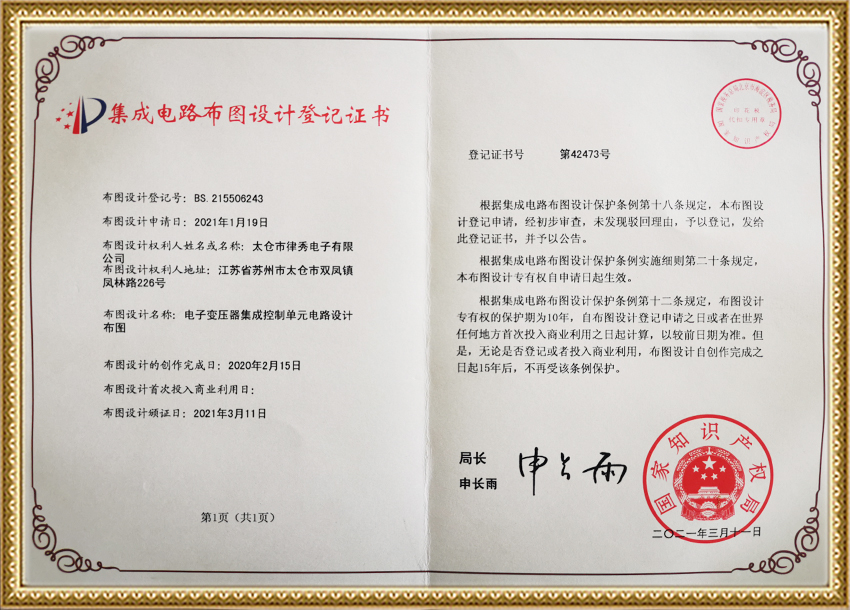 集成电路布图设计登记证书
布图设计登记号：BS. 215506243
布图设计申请日：2021年1月19日
布图设计权利人姓名或名称：太仓市律秀电子有限
公司
布图设计权利人地址：江苏省苏州市太仓市双凤镇
凤林路226号
布图设计名称：电子变压器集成控制单元电路设计
布图
布图设计的创作完成日：2020年2月15日
布图设计首次投入商业利用日：
布图设计颁证日：2021年3月11日
第1页（共1页）
登记证书号 第42473号
根据集成电路布图设计保护条例第十八条规定，本布图设
计登记申请，经初步审查，未发现驳回理由，予以登记，发给
此登记证书，并予以公告。
根据集成电路布图设计保护条例实施细则第二十条规定，
本布图设计专有权自申请日起生效。
根据集成电路布图设计保护条例第十二条规定，布图设计
专有权的保护期为10年，自布图设计登记申请之日或者在世界
任何地方首次投入商业利用之日起计算，以较前日期为准。但
是，无论是否登记或者投入商业利用，布图设计自创作完成之
日起15年后，不再受该条例保护。
局长
申长雨
申长雨
国家知识产权局
二〇二一年三月十一日